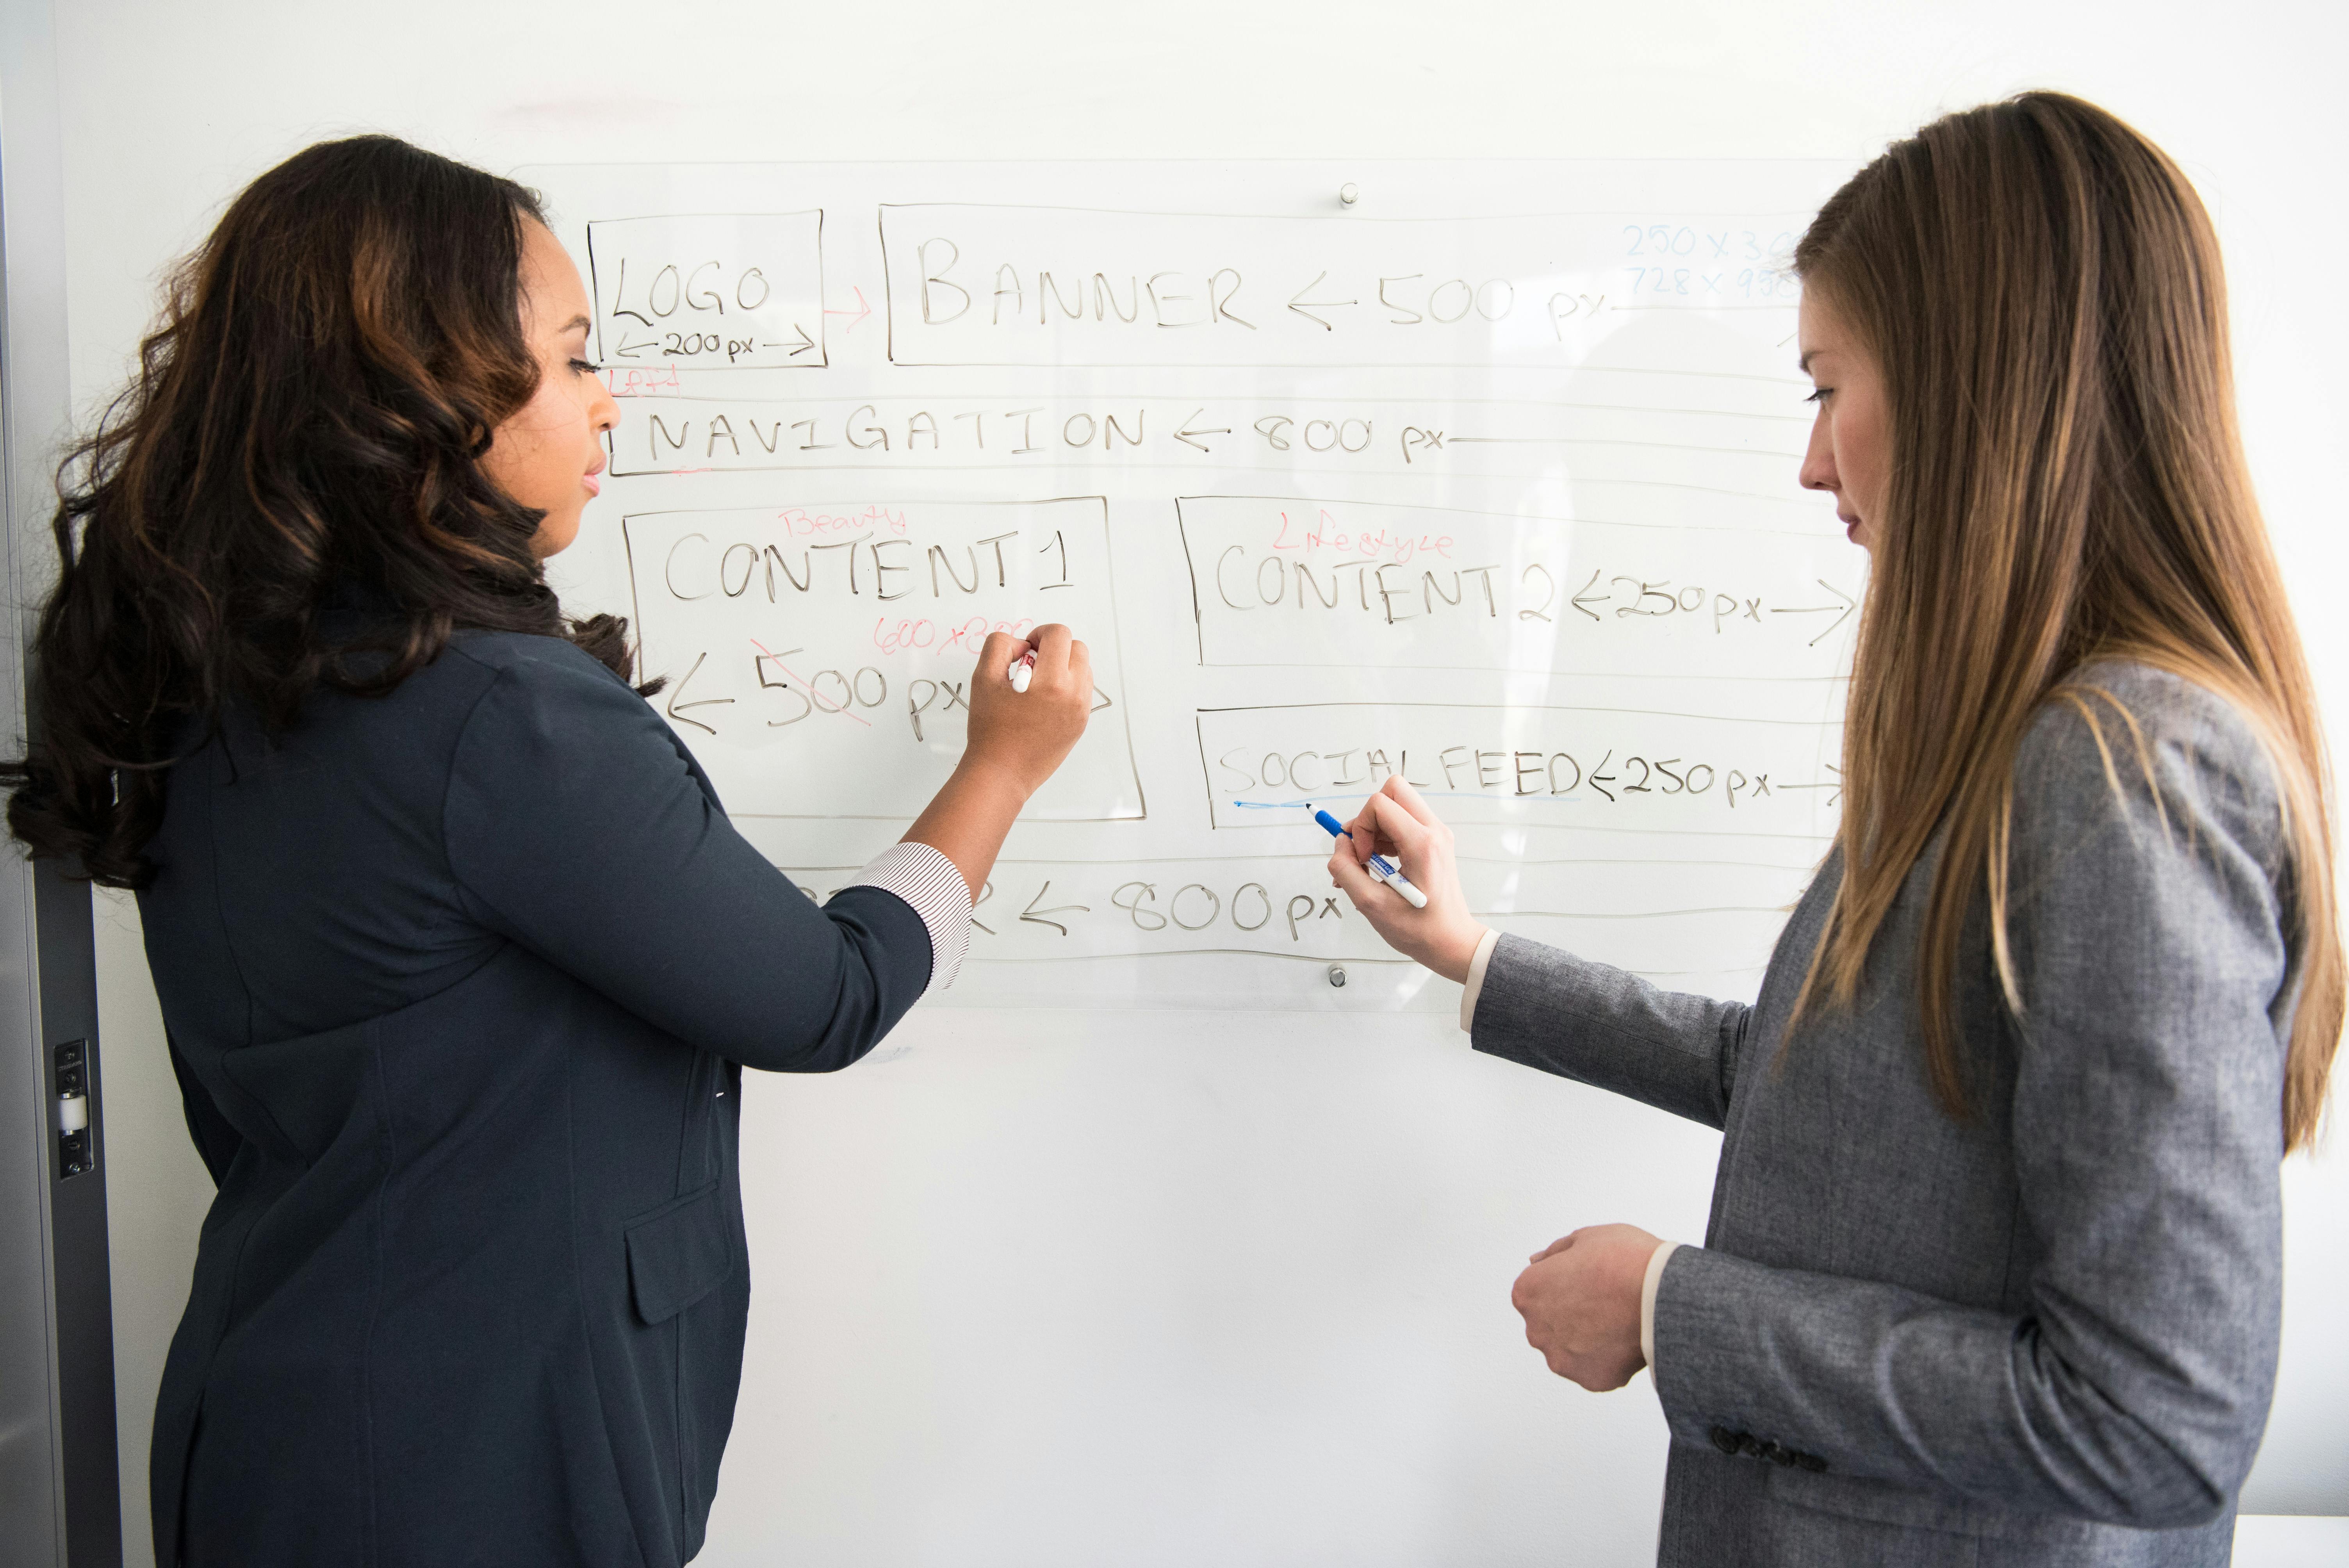 LOGO
← 200 px →
Left
→
BANNER ← 500 px
250 x 3
728 x 9
NAVIGATION ← 800 px
Beauty
CONTENT 1
600 x 3
← 500 px
Lifestyle
CONTENT 2 ← 250 px →
SOCIAL FEED ← 250 px →
R ← 800 px